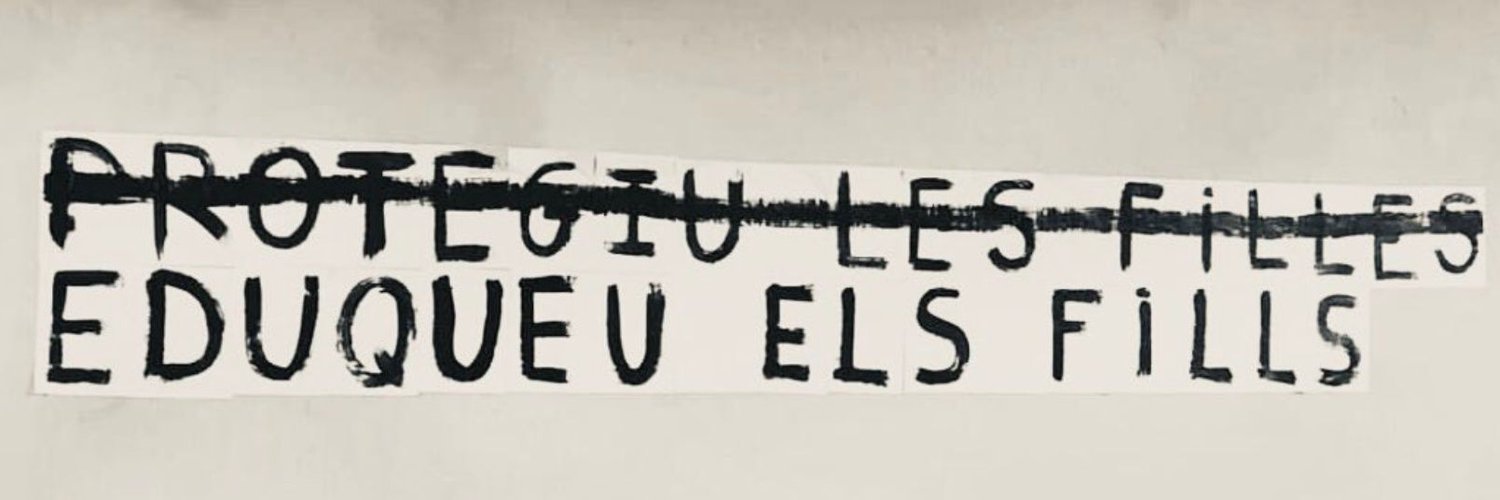 PROTEGIU LES FiLLES
EDUQUEU ELS FiLLS